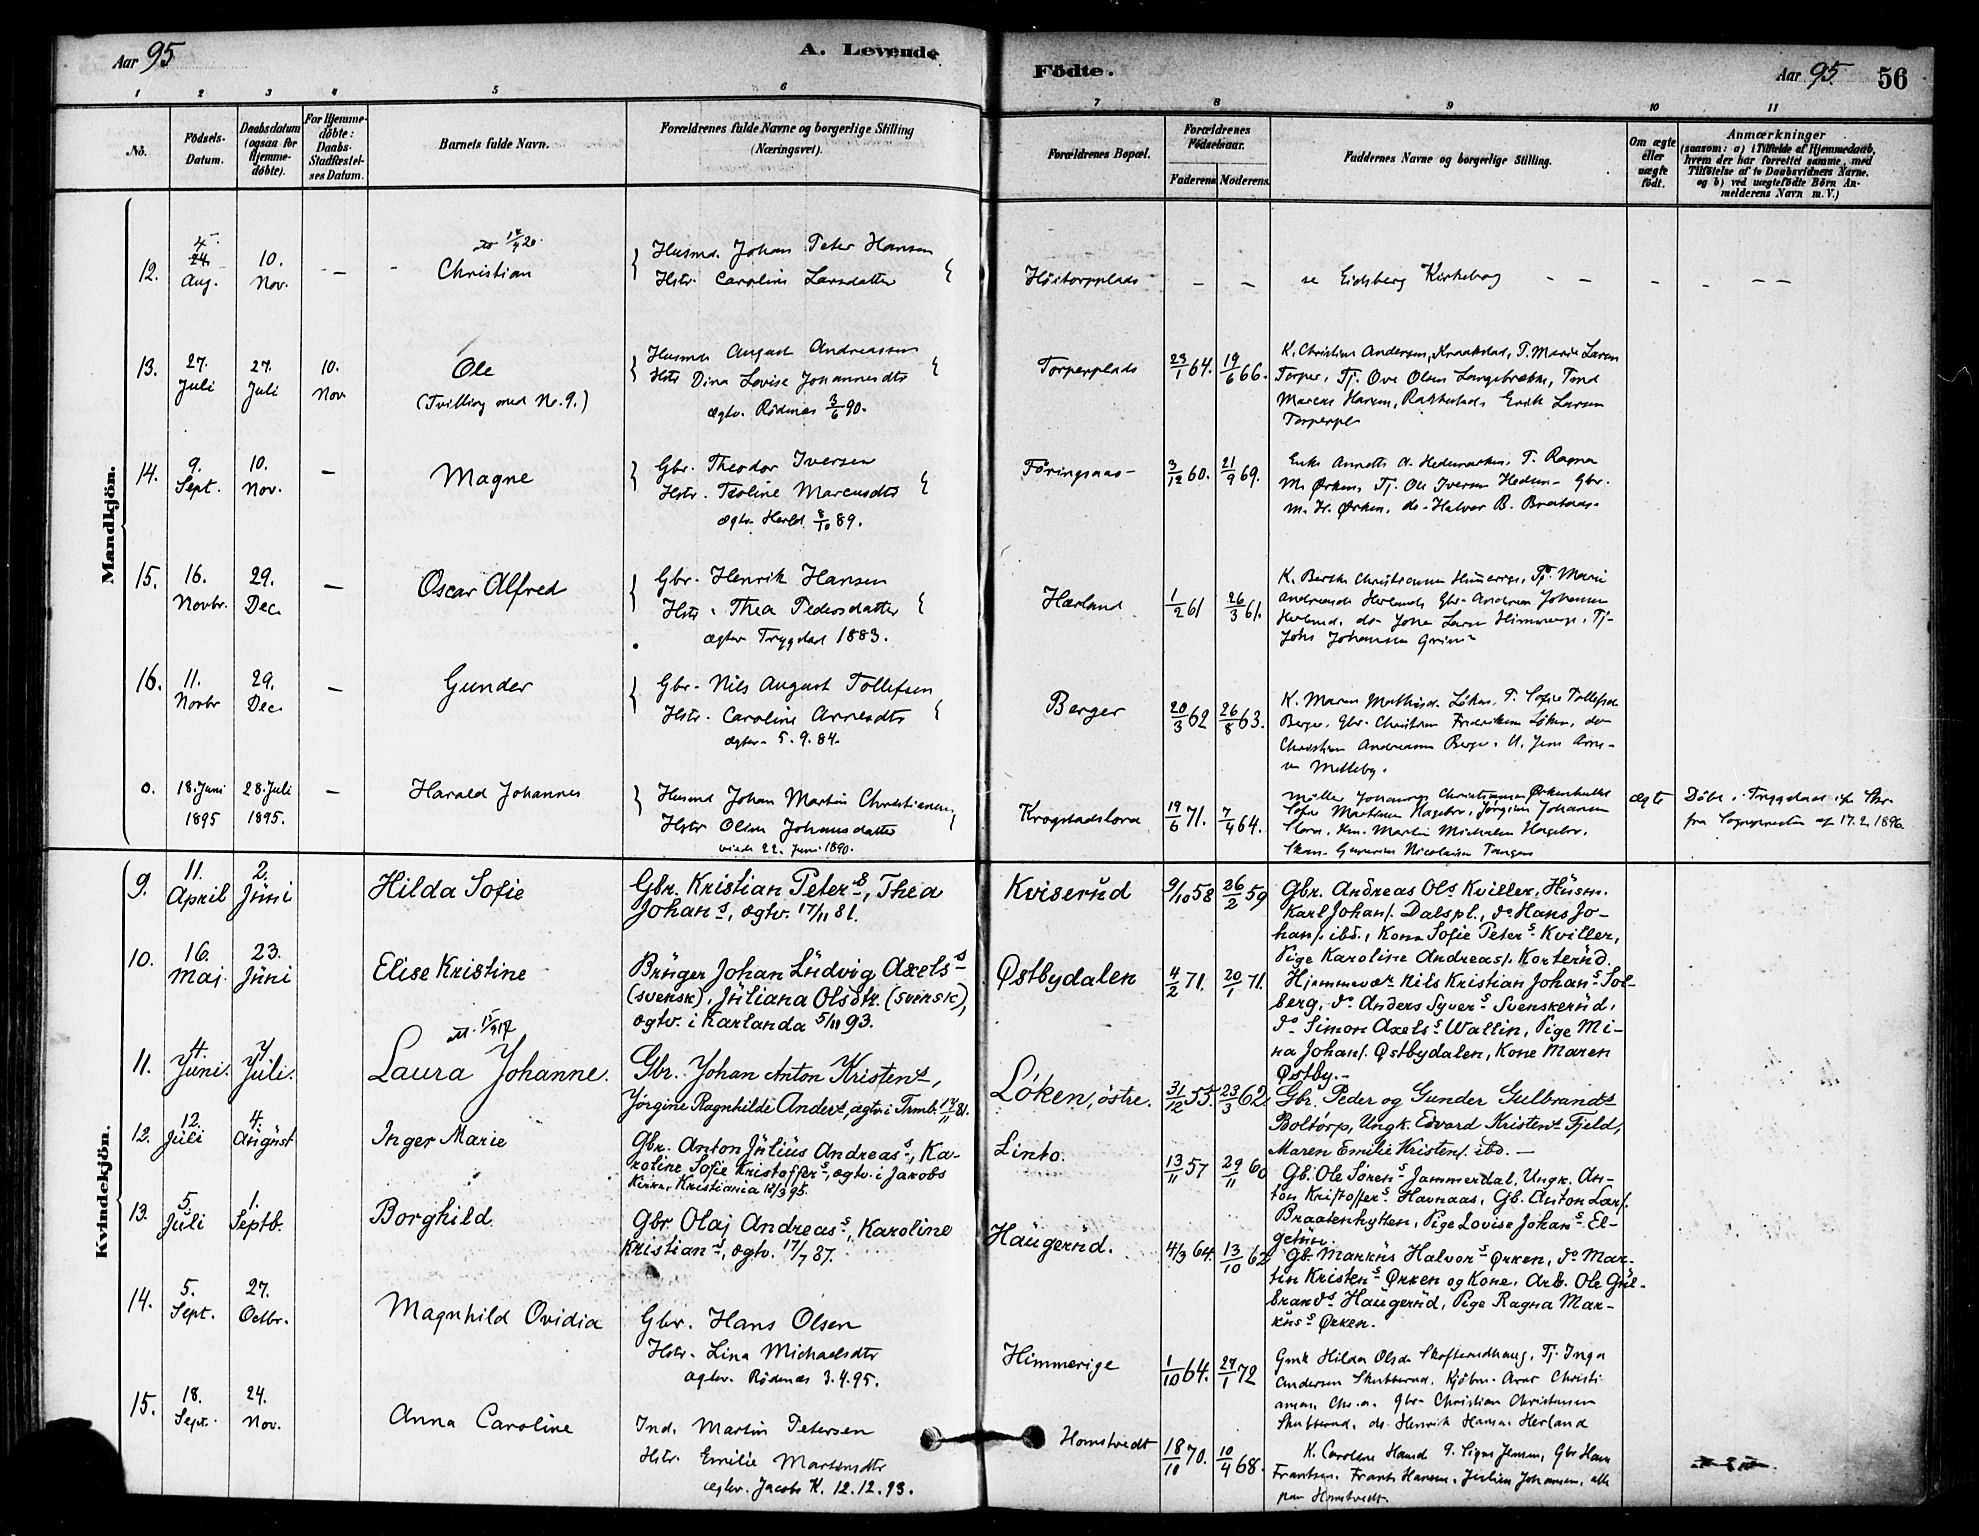 Aar 95
A. Levende
Födte.
Aar 95.
56
1 2 3 4 5 6 7 8 9 10 11
Nö.
Födsels-Datum.
Daabsdatum (ogsaa for Hjemmedöbte).
For Hjemmedöbte: Daabs-Stadfæstelses Datum.
Barnets fulde Navn.
Forældrenes fulde Navne og borgerlige Stilling (Næringsvei).
Forældrenes Bopæl.
Forældrenes Födselsaar.
Faderens. Moderens.
Faddernes Navne og borgerlige Stilling.
Om ægte eller uægte födt.
Anmærkninger
(saasom: a) i Tilfælde af Hjemmedaab, hvem der har forrettet samme, med Tilföielse af to Daabsvidners Navne. og b) ved uægtefödte Börn Anmelderens Navn m.V.)
Mandkjön.
12. 4 24 Aug. 10. Nov. — Christian
Husmd. Johan Peter Hansen
Hstr. Caroline Larsdatter
Höitorpplads — — se Eidsberg Kirkebog — — — — —
13. 27. Juli 27. Juli 10. Nov Ole
(Tvilling med No. 9.)
Husmd August Andreassen
Hstr Dina Lovise Johannesdtr
ægtv. Rödenes 3/6 90.
Torperplads 23/1 64. 19/6 66.
K. Christine Andersen, Kraakstad, T. Marie Larsen
Torper, Tj. Ove Olsen Langebrække, Tond
Marcus Hansen, Rakkestad, Erik Larsen
Torperpl
14. 9. Sept. 10. Nov. — Magne
Gbr. Theodor Iversen
Hstr. Troline Marcusdtr
ægtv. Herld 8/10 89.
Föringsaas 3/12 60. 21/9 69.
Enke Annette A. Hedemarken, T. Ragna
M. Ørken, Tj. Ole Iversen Hedem- Gbr.
M. H. Ørken, do- Halvor B. Braataas.
15. 16. Novbr. 29. Dec. — Oscar Alfred
Gbr. Henrik Hansen
Hstr. Thea Pedersdatter
ægtv Trygstad 1883.
Hærland 1/2 61 26/3 61.
K. Berthe Christiansen Himerige, Tj. Marie
Andreasd. Herland, Gbr. Andreas Johansen
Herland, do- John Larsen Himmerige, Tj-
Johs Johansen Grim
16. 11. Novbr 29. Dec. — Gunder
Gbr. Nils August Tollefsen
Hstr. Caroline Arnesdtr
ægtv. 5.9.84.
Berger 20/3 62 26/8 63.
K. Maren Mathisd. Löken, T. Sofie Tollefsd
Berger, Gbr. Christian Frederiksen Löken, do
Christian Andreasen Berger, U. Jens Arne-
sen Melleby.
0. 18. Juni 1895 28. Juli 1895. — Harald Johannes
Husmd Johan Martin Christiansen
Hstr Oline Johansdatter
viede 22. Juni 1890.
Krogstadslora 19/6 71. 7/4 64. ægte
Möller Johannes Christiansen Ørkenhullet
Sofie Mathisen Hagebro, Jörgine Johansen
Slora, Km. Martin Michalsen Hagebro,
Skom. Gunerius Nicolaisen Tangen
Döbt i Trygstad ifr. Skr.
fra Sognepresten af 17.2.1896.
Kvindekjön.
9. 11. April 2. Juni Hilda Sofie
Gbr. Kristian Peters, Thea
Johans, ægtv. 17/11 81.
Kviserud 9/10 58 26/2 59
Gbr. Andreas Ols Kviller, Husm.
Karl Johans. Dalspl., do Hans Jo-
hans. ibd., Kona Sofie Peters Kviller,
Pige Karoline Andreas. Korterud.
10. 16. Mai 23. Juni Elise Kristine
Bruger Johan Ludvig Axels
(svensk), Juliana Olsdtr. (svensk),
ægtv. i Karlanda 5/11 93.
Østbydalen 4/2 71. 20/1 71.
Hjemmevær Nils Kristian Johans Sol-
berg, do Anders Syvers Svenskerud,
do Simon Axels Wallin, Pige Mi-
na Johans. Østbydalen, Kone Maren
Østby.—
11. 4. Juni. 7. Juli. Laura Johanne.
Gbr. Johan Anton Kristens,
Jörgine Ragnhilde Anders, ægtv. i Trmb. 14/11 81.
Löken, östre. 31/12 55. 23/3 62
Gbr. Peder og Gunder Gulbrands
Boltorp, Ungk. Edvard Kristens Fjeld,
Maren Emilie Kristens. ibd.—
12. 12. Juli 4. August Inger Marie
Gbr. Anton Julius Andreas, Ka-
roline Sofie Kristoffers, ægtv. i Jakobs
Kirke, Kristiania 12/3 95.
Linto. 13/11 57 29/11 60
Gb. Ole Sörens Jammerdal, Ungk. An-
ton Kristoffers Havnaas, Gb. Anton Lars.
Braatenhytten, Pige Lovise Johans El-
getun.
13. 5. Juli 1. Septb. Borghild.
Gbr. Olaj Andreas, Karoline
Kristians, ægtv. 17/7 87.
Haugerud. 4/3 64. 13/10 62
Gb. Markus Halvors Ørken, do Mar-
tin Kristens Ørken og Kone, Arb. Ole Gul-
brands Haugerud, Pige Ragna Mar-
kus Ørken.
14. 5. Sept. 27. Octbr. Magnhild Ovidia
Gbr. Hans Olsen
Hstr. Lina Michaelsdtr
ægtv. Rödenes 3.4.95.
Himmerige 1/10 64. 27/1 72
Gmk Hilda Olsd. Skofterudhaug, Tj. Inga
Andersen Skubberud, Kjöbm. Arnt Christi
ansen, Gbr. Christian Christiansen
Skubberud, do. Henrik Hansen Herland
15. 18. Sept. 24. Nov. Anna Caroline
Ind. Martin Petersen
Hstr. Emilie Martinsdtr
ægtv. Jacobs K. 12.12.93.
Homtvedt 18/11 70. 10/4 68.
K. Caroline Hansd P. Signe Jensen, Gbr Hans
Frantsen, Frants Hansen, Julius Johansen, alle
paa Homtvedt.